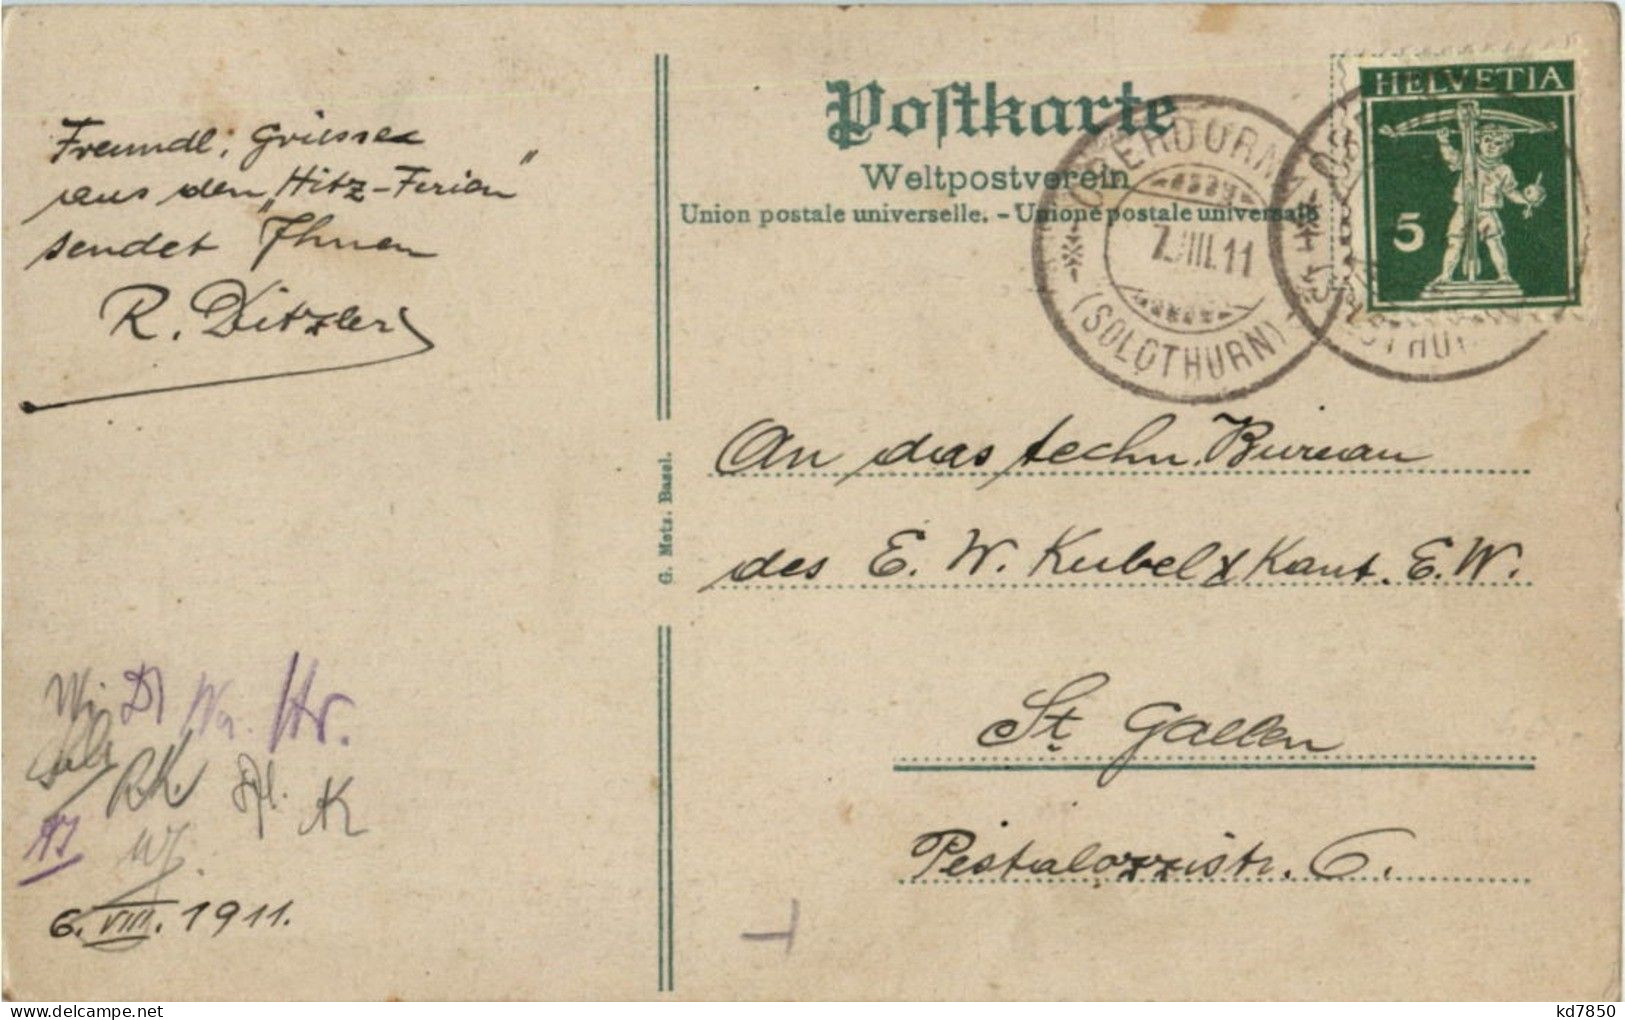 Postkarte
Weltpostverein
Union postale universelle. - Unione postale universale
HELVETIA
5
OBERDORF
7.VIII.11
(SOLOTHURN)
Freundl. Griesse
aus den „Hitz-Ferien"
sendet Ihnen
R. Ditzler
G. Metz. Basel.
An das techn. Bureau
des E. W. Kubel & Kant. E. W.
St. Gallen
Pestalozzistr. 6.
Wi
Hr.
RK.
K
6. VIII. 1911.
kd7850